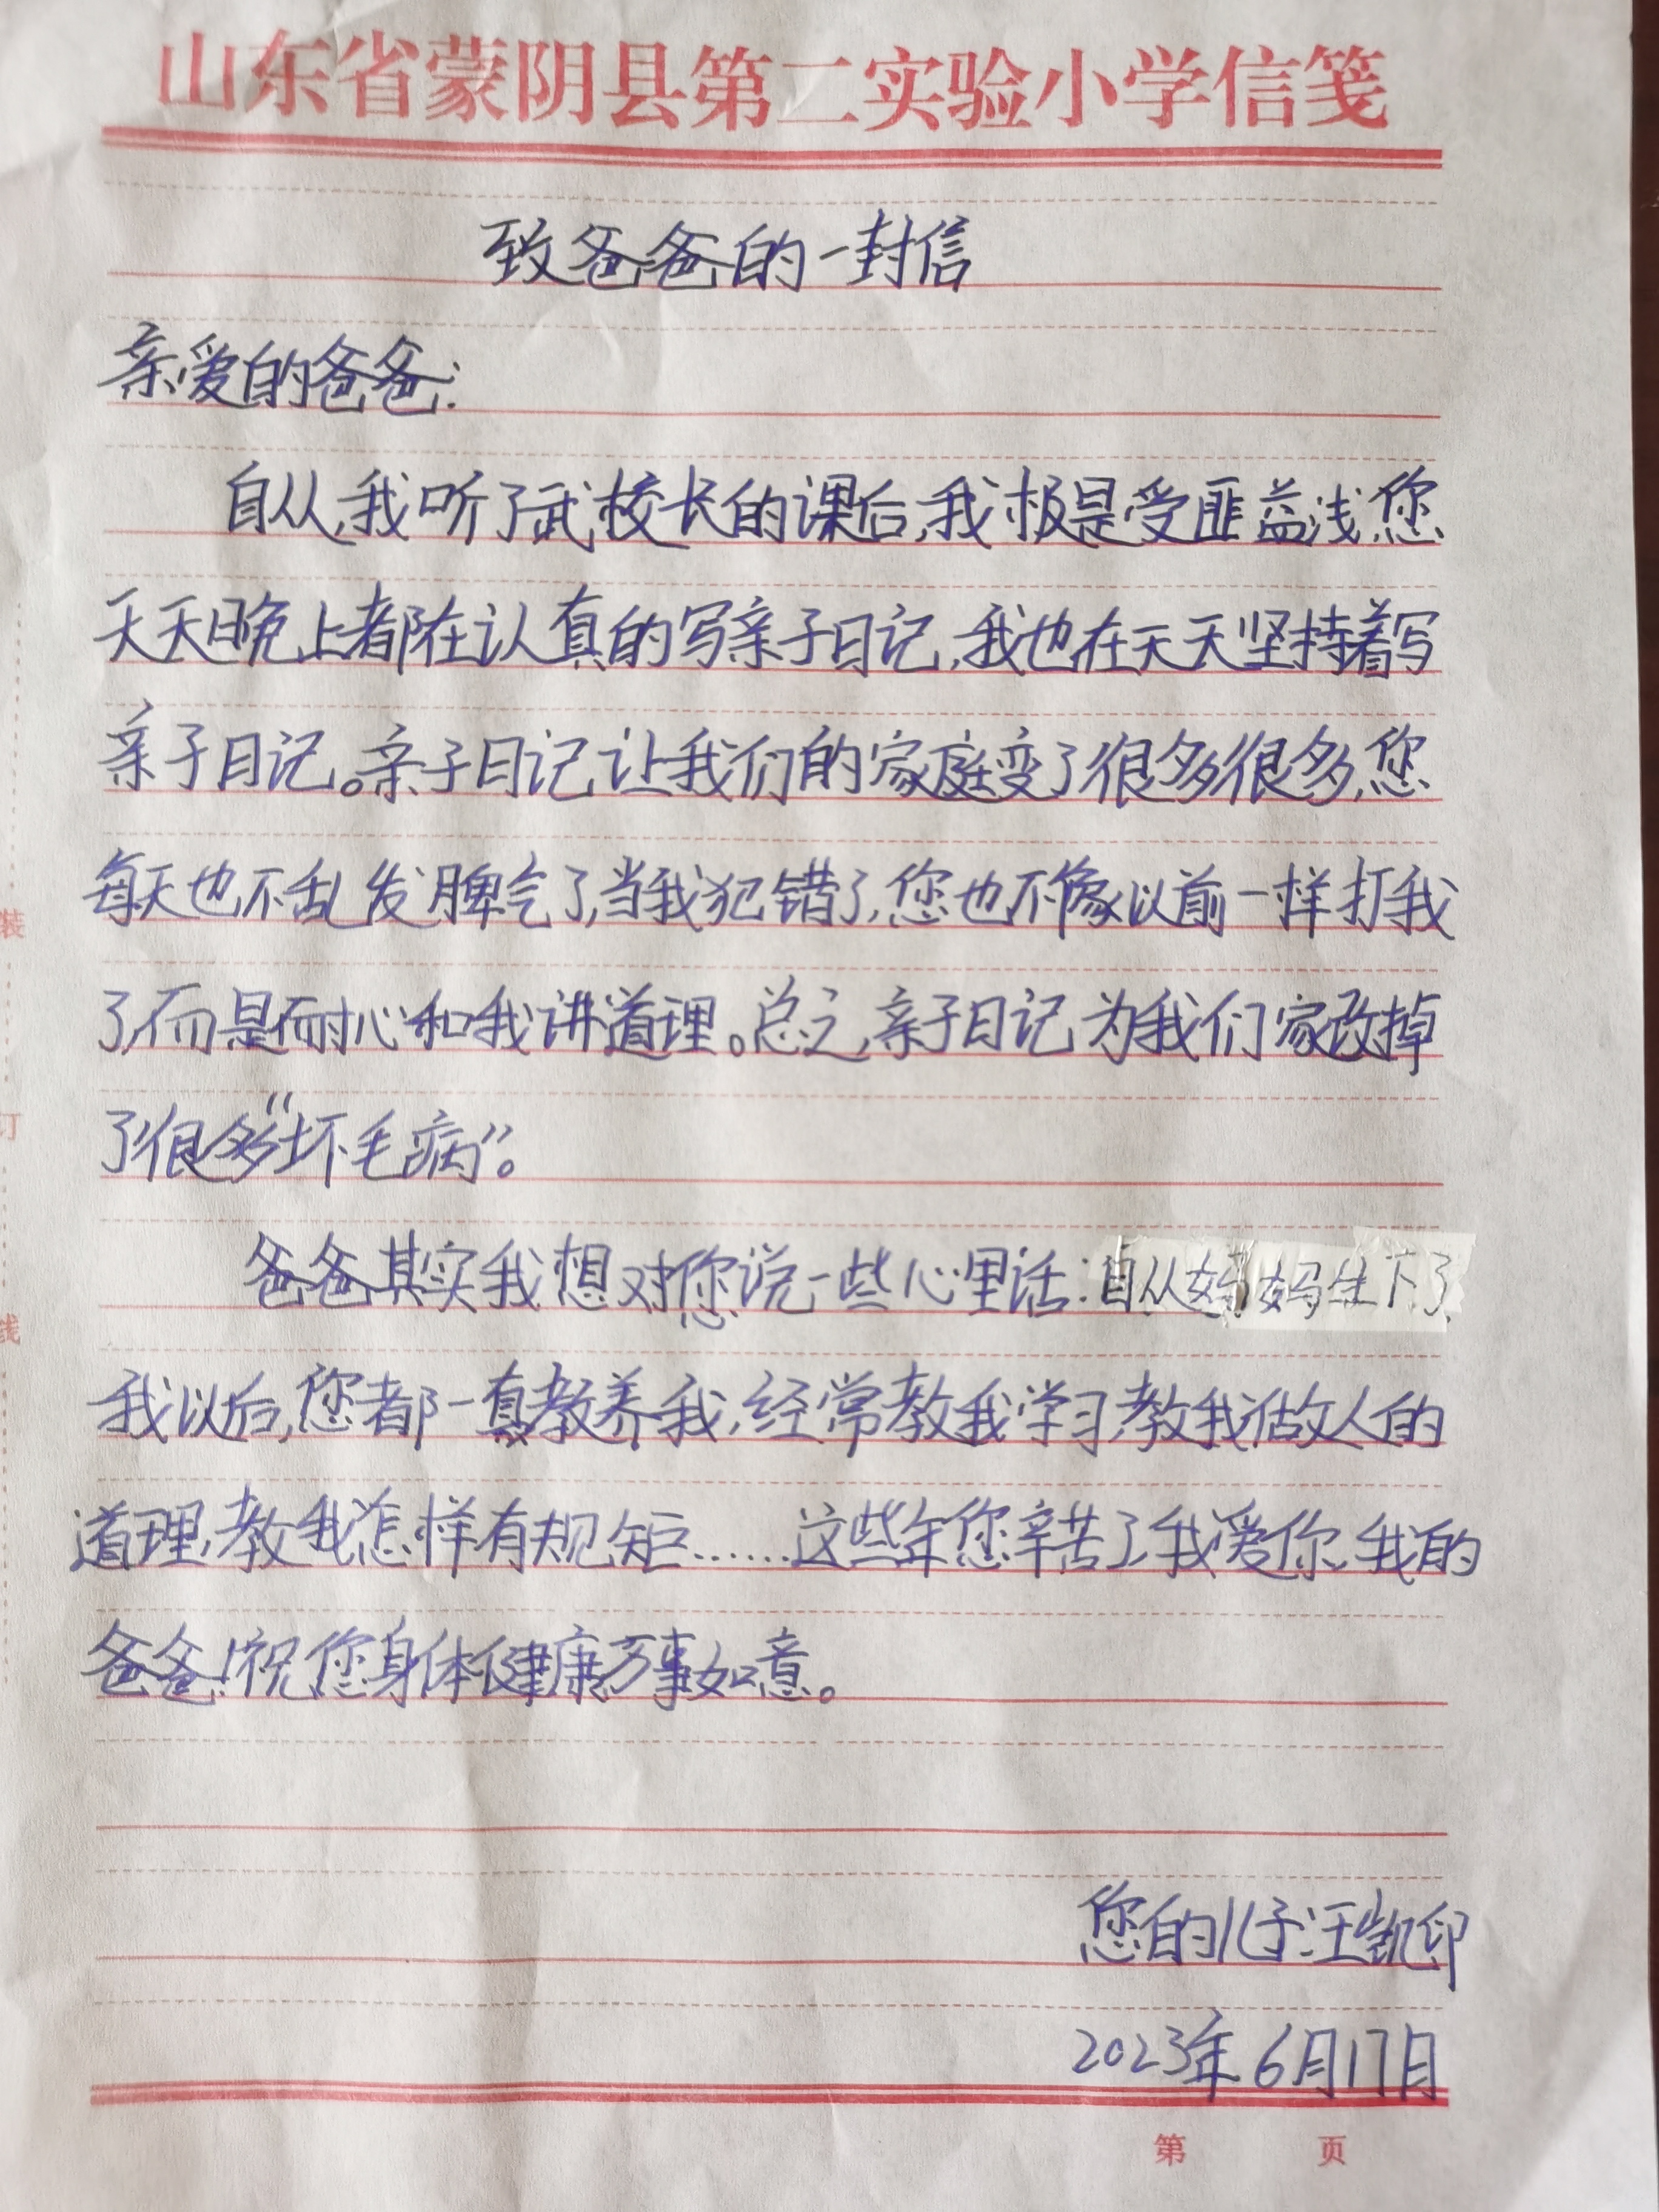 山东省蒙阴县第二实验小学信笺
致爸爸的一封信
亲爱的爸爸:
自从,我听了武校长的课后,我极是受匪益浅,您
天天晚上都在认真的写亲子日记,我也在天天坚持着写
亲子日记。亲子日记让我们的家庭变了很多很多,您
每天也不乱发脾气了,当我犯错了,您也不像以前一样打我
了,而是耐心和我讲道理。总之,亲子日记为我们家改掉
了很多“坏毛病”。
爸爸其实我想对您说一些心里话:自从妈妈生下了
我以后,您都一直教养我,经常教我学习,教我做人的
道理,教我怎样有规矩……这些年您辛苦了,我爱你,我的
爸爸!祝您身体健康万事如意。
您的儿子:汪凯印
2023年6月17日
第 页
装
订
线